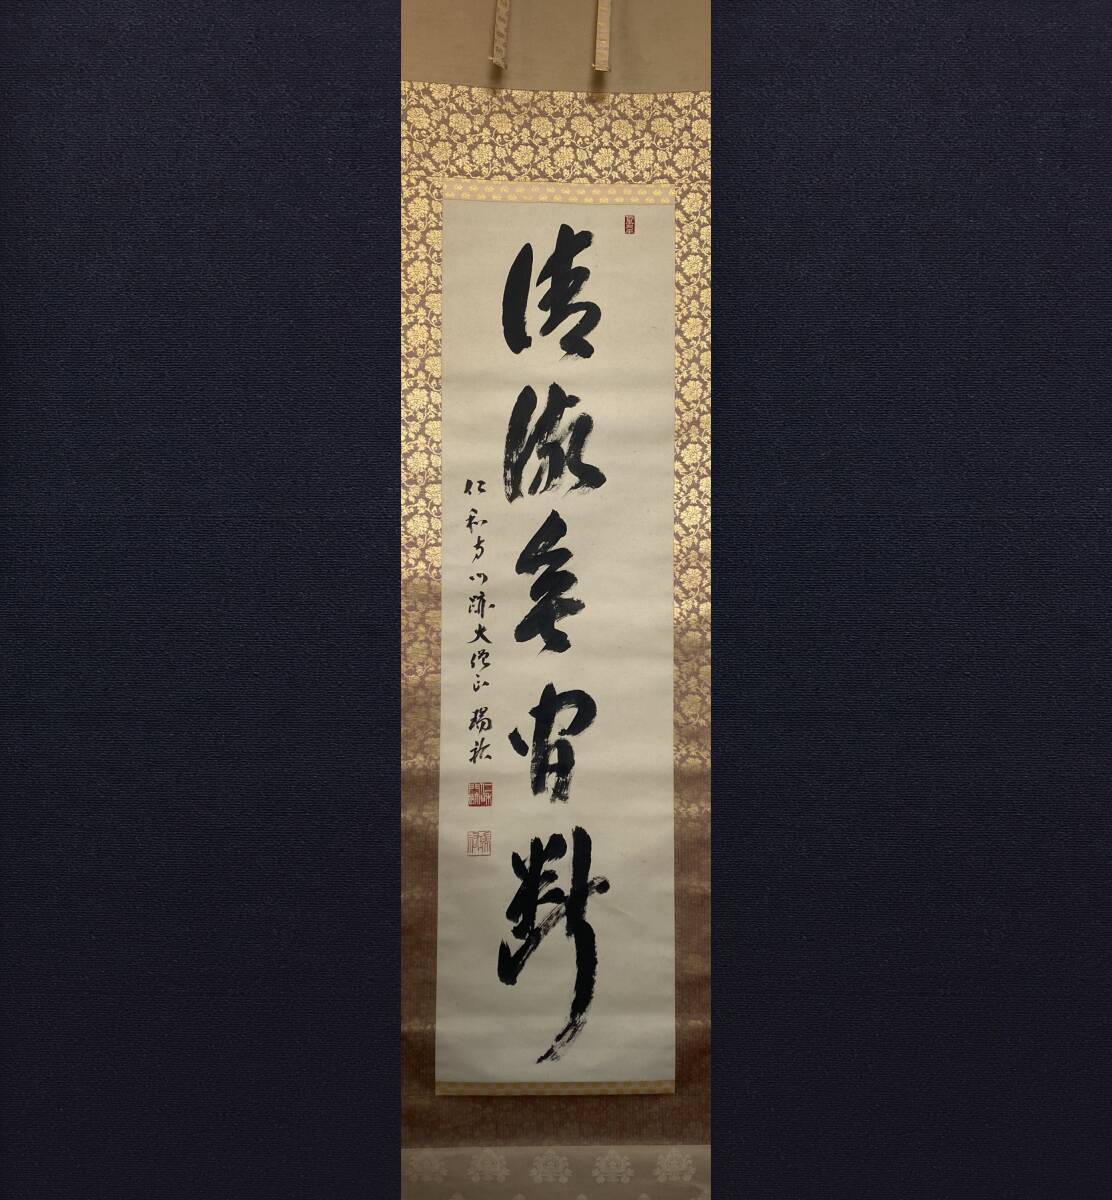 清流無間断
仁和寺門跡大僧正 揚